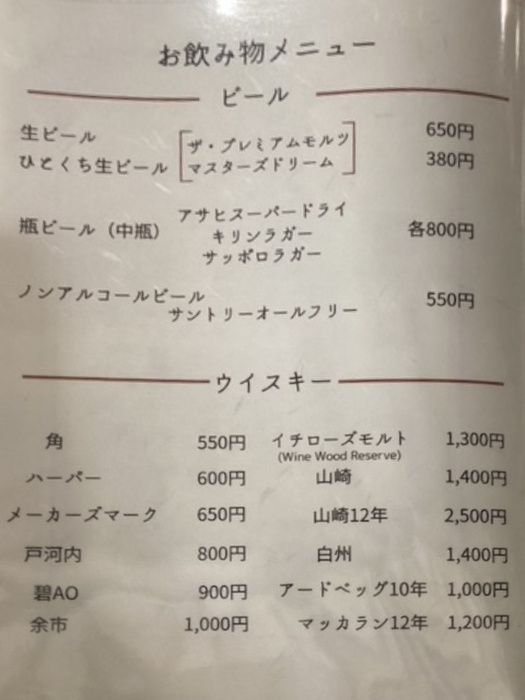 お飲み物メニュー
ビール
生ビール ザ・プレミアムモルツ 650円
ひとくち生ビール マスターズドリーム 380円
アサヒスーパードライ
瓶ビール（中瓶） キリンラガー 各800円
サッポロラガー
ノンアルコールビール 550円
サントリーオールフリー
ウイスキー
角 550円 イチローズモルト 1,300円
(Wine Wood Reserve)
ハーパー 600円 山崎 1,400円
メーカーズマーク 650円 山崎12年 2,500円
戸河内 800円 白州 1,400円
碧AO 900円 アードベッグ10年 1,000円
余市 1,000円 マッカラン12年 1,200円